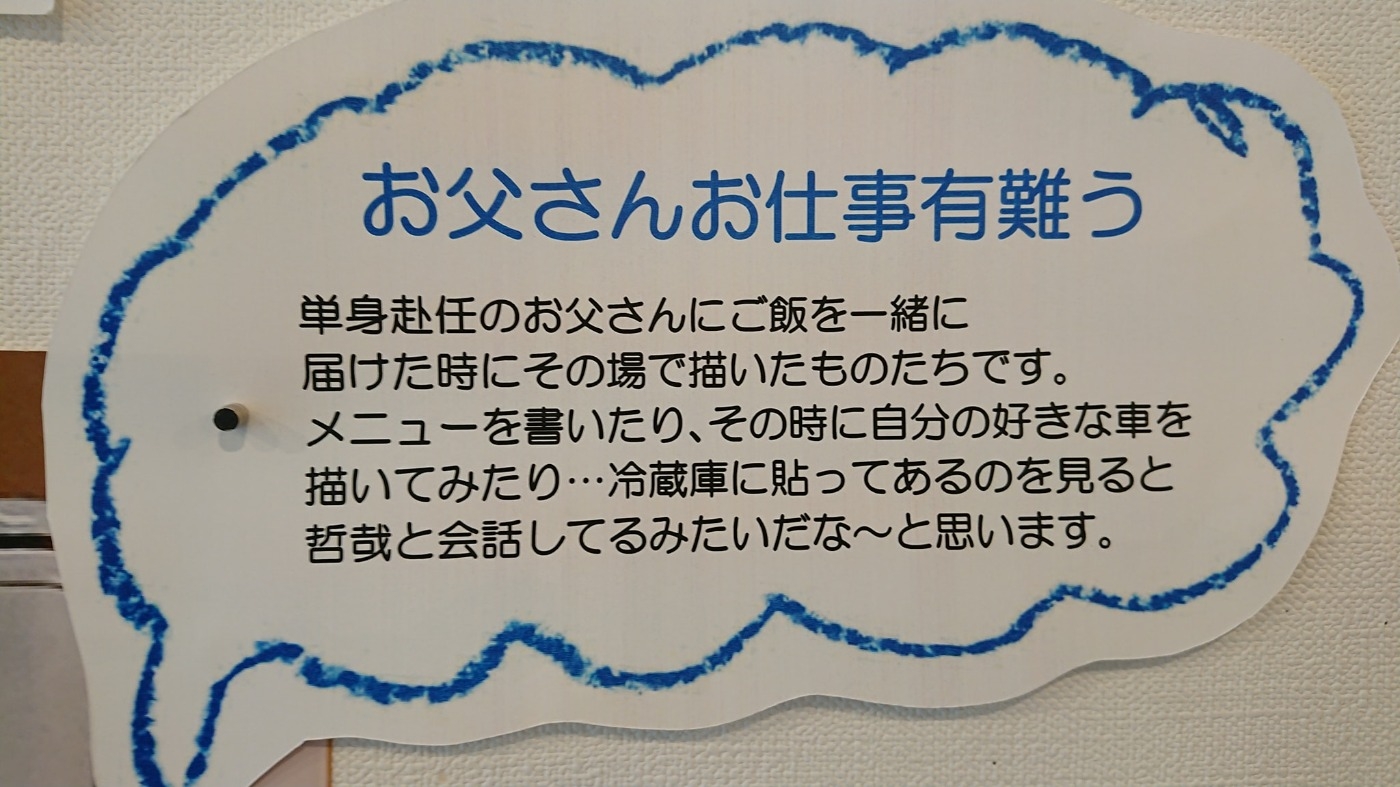 お父さんお仕事有難う
単身赴任のお父さんにご飯を一緒に
届けた時にその場で描いたものたちです。
メニューを書いたり、その時に自分の好きな車を
描いてみたり…冷蔵庫に貼ってあるのを見ると
哲哉と会話してるみたいだな〜と思います。